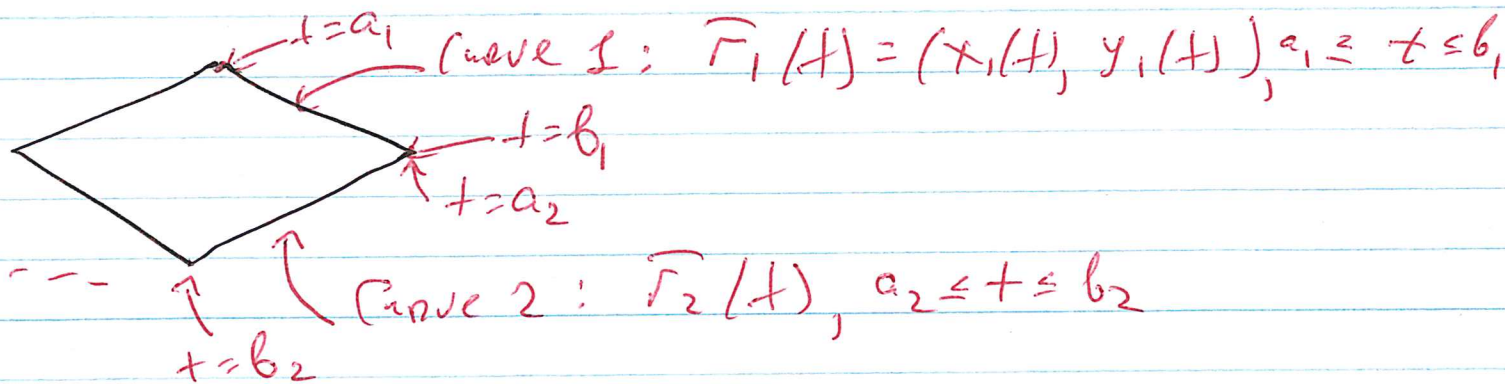 t=a₁
Curve 1: r̄₁(t)=(x₁(t), y₁(t)), a₁ ≤ t ≤ b₁
t=b₁
t=a₂
---
Curve 2: r̄₂(t), a₂ ≤ t ≤ b₂
t=b₂